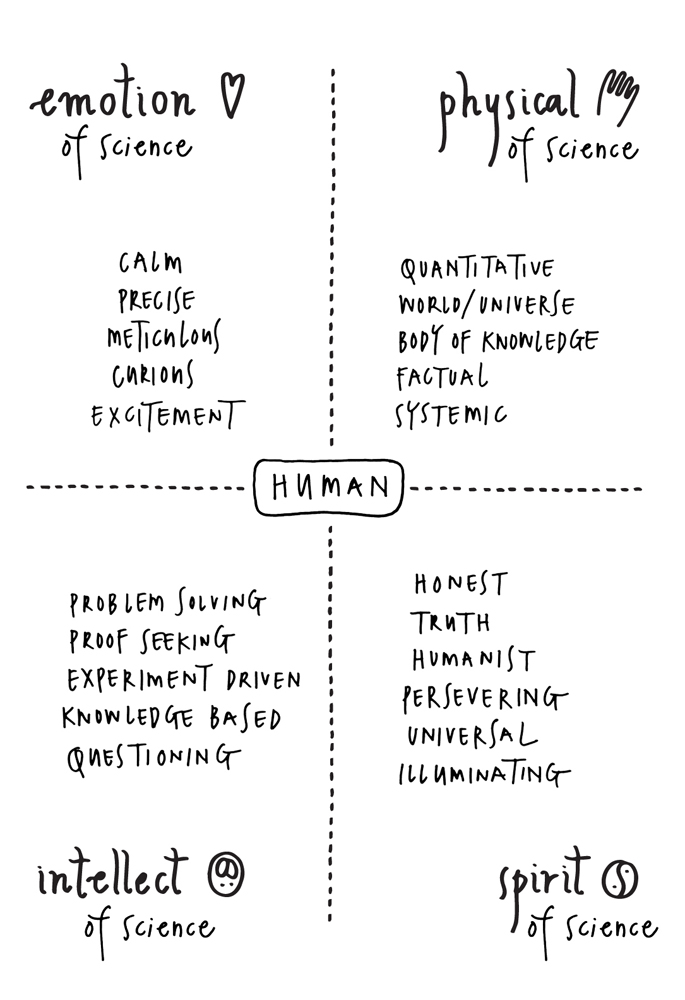 emotion
of science
CALM
PRECISE
METICULOUS
CURIOUS
EXCITEMENT
physical
of science
QUANTITATIVE
WORLD/UNIVERSE
BODY OF KNOWLEDGE
FACTUAL
SYSTEMIC
HUMAN
PROBLEM SOLVING
PROOF SEEKING
EXPERIMENT DRIVEN
KNOWLEDGE BASED
QUESTIONING
intellect
of science
HONEST
TRUTH
HUMANIST
PERSEVERING
UNIVERSAL
ILLUMINATING
spirit
of science